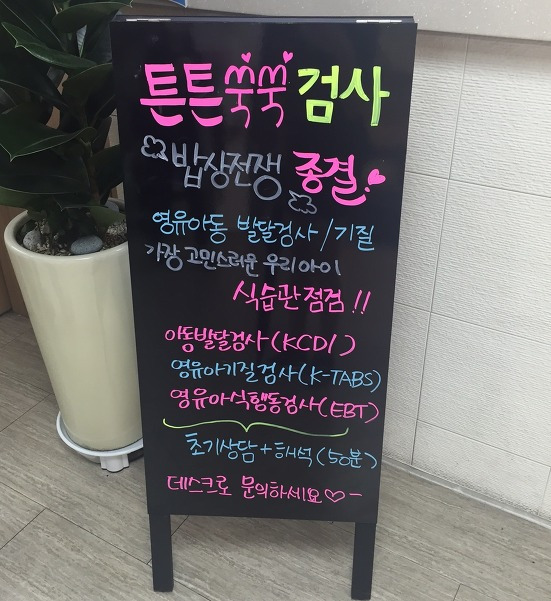 튼튼쑥쑥 검사
밥상전쟁 종결!
영유아동 발달검사/기질
가장 고민스러운 우리아이
식습관점검!!
아동발달검사(KCDI)
영유아기질검사(K-TABS)
영유아식행동검사(EBT)
초기상담+해석(50분)
데스크로 문의하세요♡~